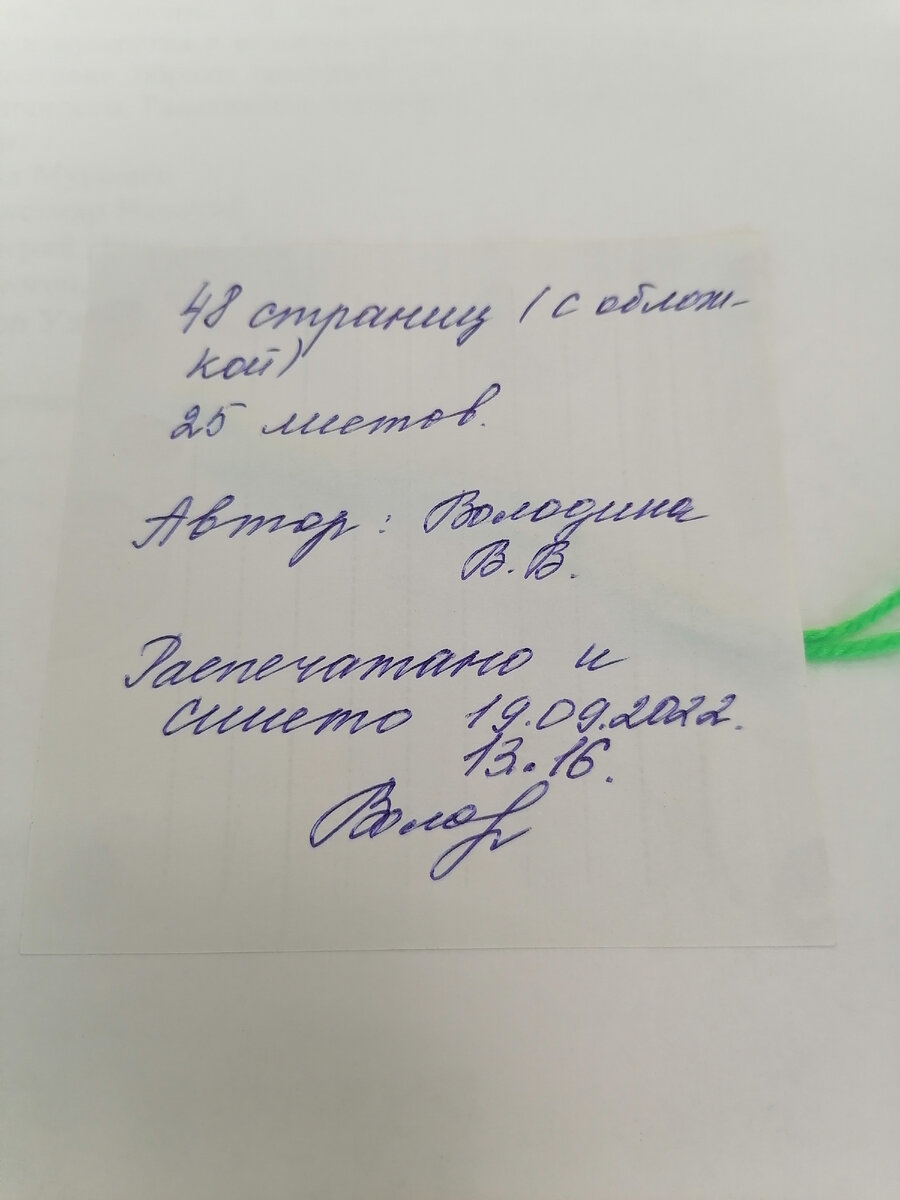 48 страниц (с облож-
кой)
25 листов.
Автор: Володина
В.В.
Распечатано и
сшито 19.09.2022.
13.16.